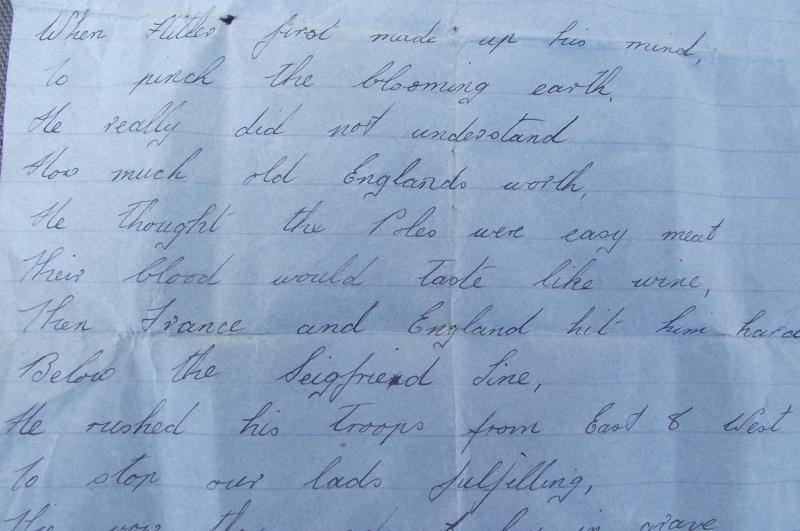 When Hitler first made up his mind,
To pinch the blooming earth,
He really did not understand
How much old Englands worth,
He thought the Poles were easy meat
Their blood would taste like wine,
Then France and England hit him hard
Below the Seigfried Line,
He rushed his troops from East & West
To stop our lads fulfilling,
in grave